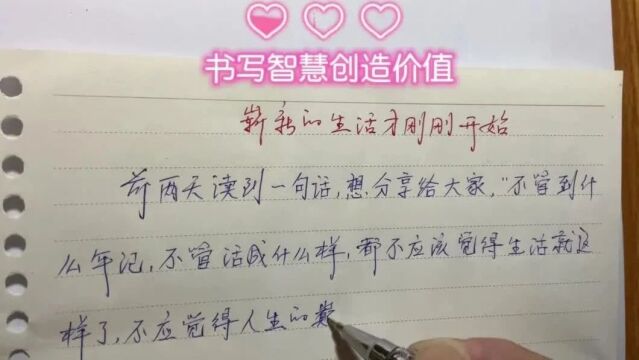 书写智慧创造价值
崭新的生活才刚刚开始
前两天读到一句话,想分享给大家,"不管到什
么年记,不管活成什么样,都不应该觉得生活就这
样了,不应觉得人生的